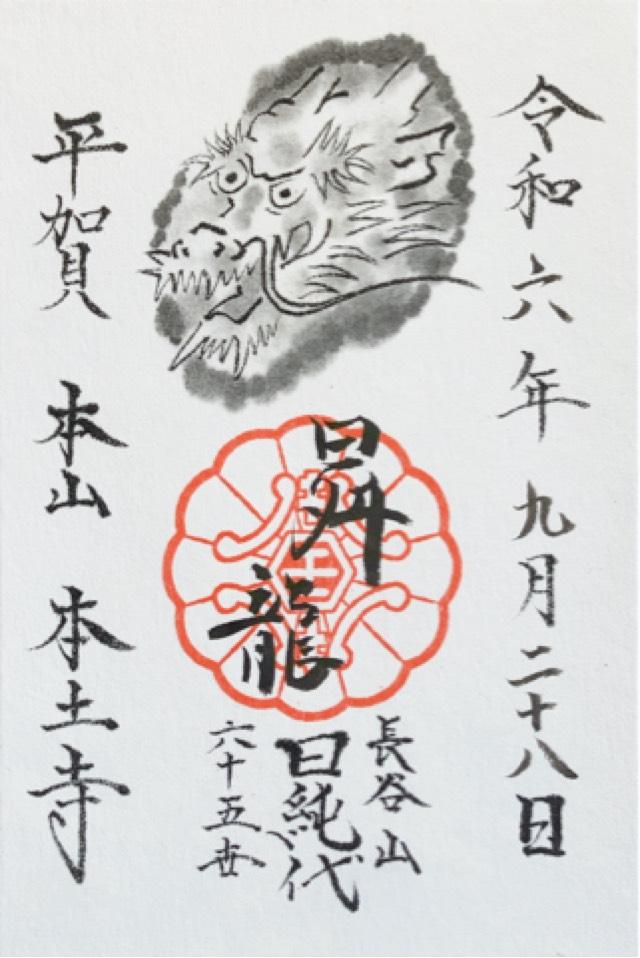 令和六年 九月二十八日
昇龍
長谷山
日純代
六十五世
平賀 本山 本土寺